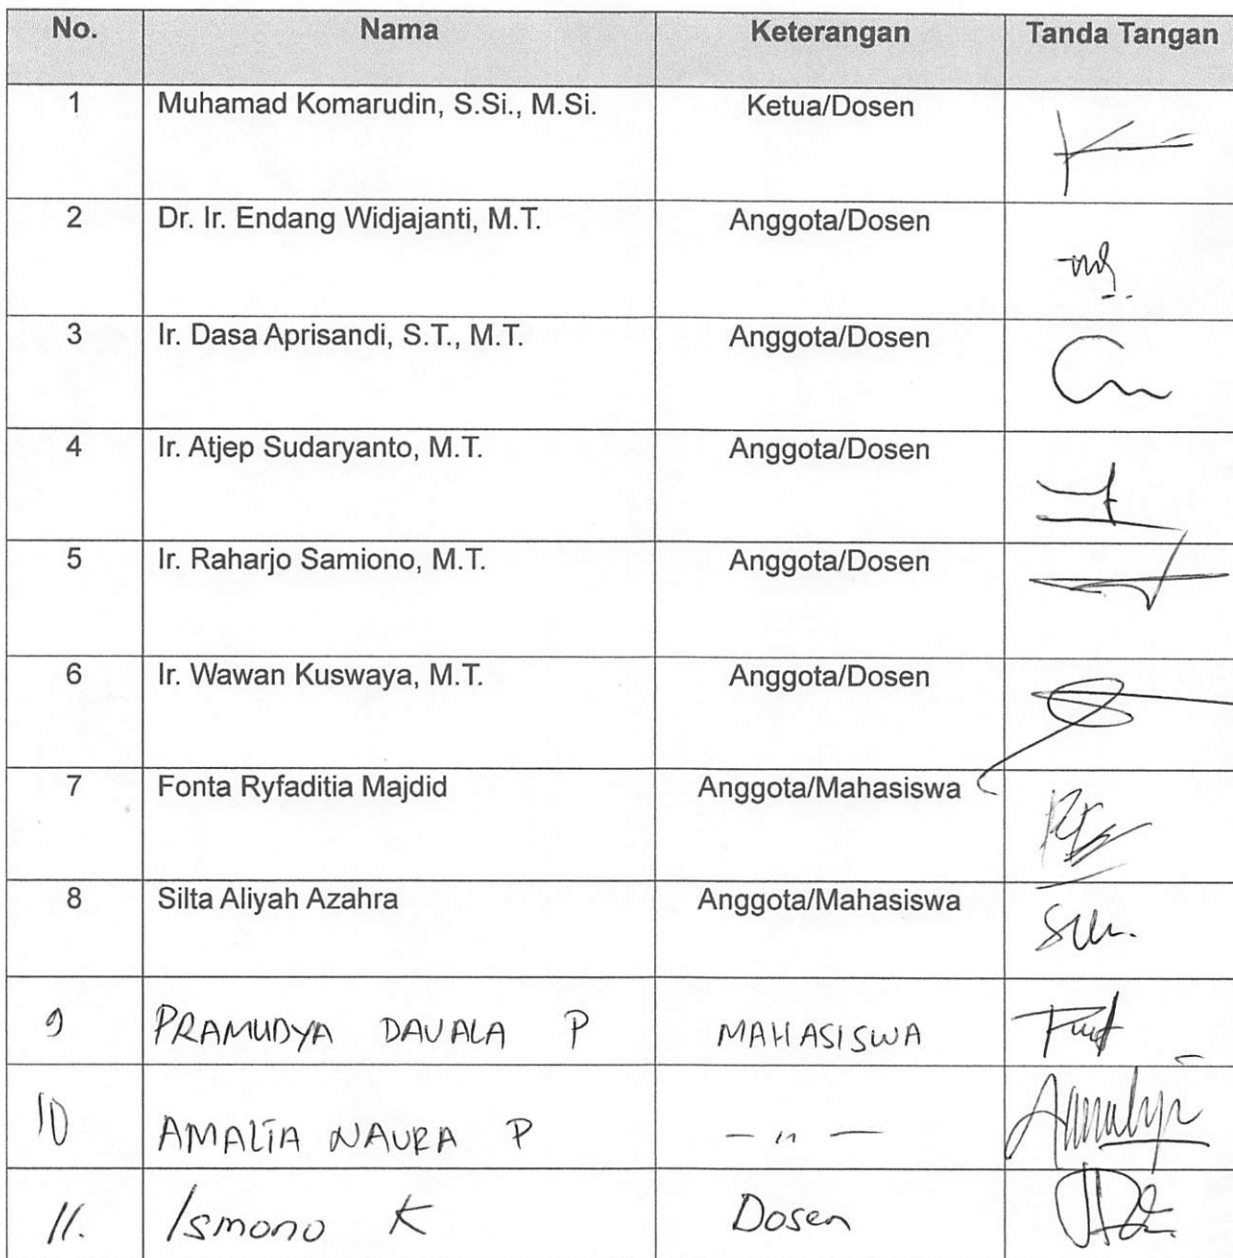 No. Nama Keterangan Tanda Tangan
1 Muhamad Komarudin, S.Si., M.Si. Ketua/Dosen
2 Dr. Ir. Endang Widjajanti, M.T. Anggota/Dosen
3 Ir. Dasa Aprisandi, S.T., M.T. Anggota/Dosen
4 Ir. Atjep Sudaryanto, M.T. Anggota/Dosen
5 Ir. Raharjo Samiono, M.T. Anggota/Dosen
6 Ir. Wawan Kuswaya, M.T. Anggota/Dosen
7 Fonta Ryfaditia Majdid Anggota/Mahasiswa
8 Silta Aliyah Azahra Anggota/Mahasiswa
9 PRAMUDYA DAVALA P MAHASISWA
10 AMALIA NAURA P — " —
11. Ismono K Dosen